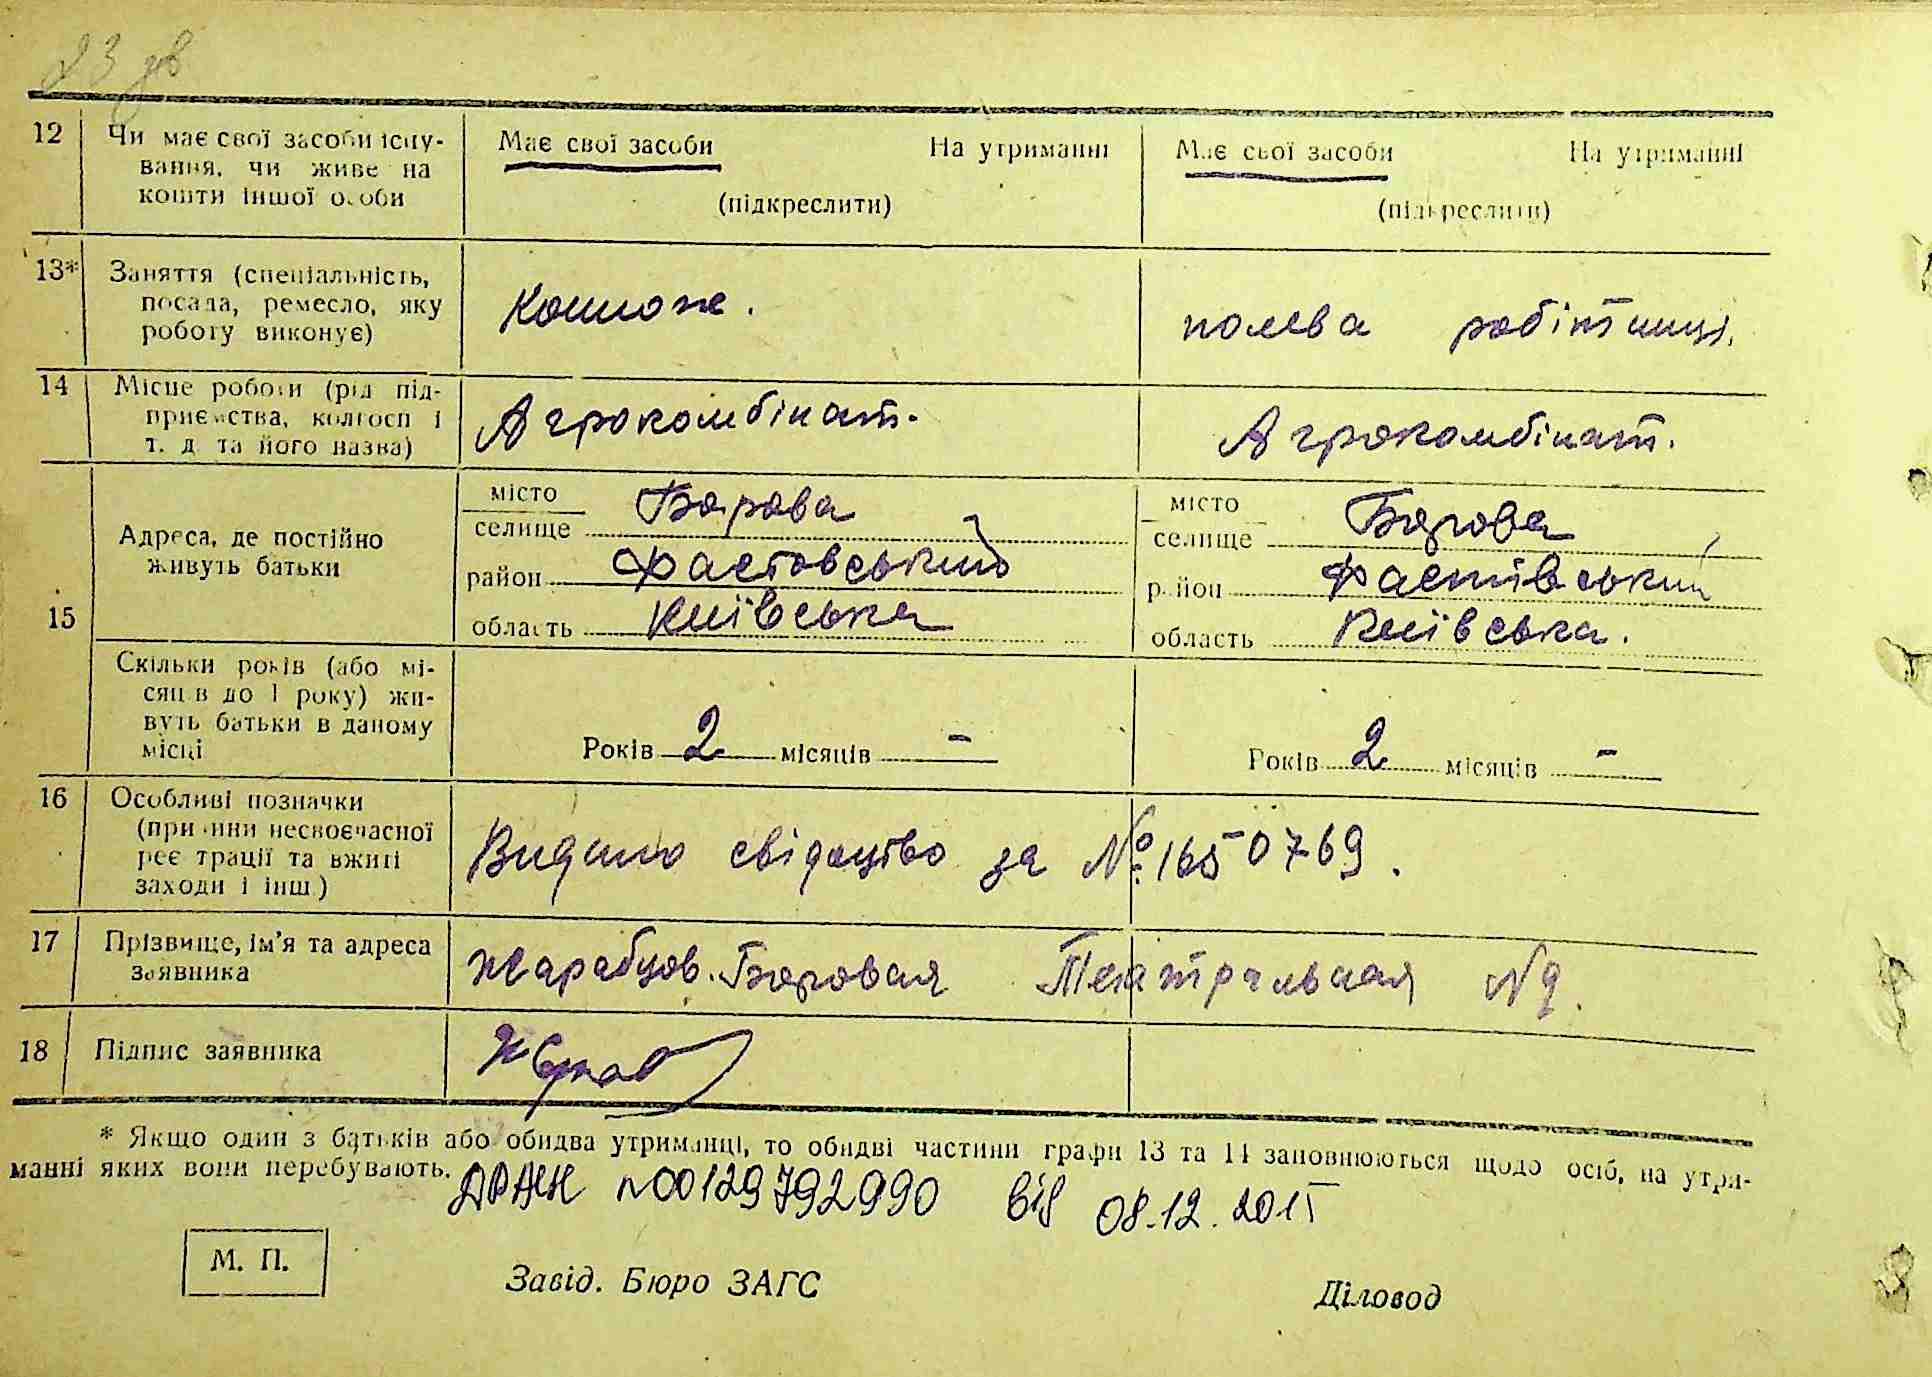 23 дв
12 Чи має свої засоби існу- Має свої засоби На утриманні Має свої засоби На утриманні
вання, чи живе на
кошти іншої особи (підкреслити) (підкреслити)
13* Заняття (спеціальність,
посада, ремесло, яку полева робітниця.
роботу виконує)
14 Місце роботи (рід під- Агрокомбінат. Агрокомбінат.
приємства, колгосп і
т. д. та його назва)
15 Адреса, де постійно живуть батьки
місто
селище Борова
район Фастовський
область Київська
місто
селище Борова
район Фастівський
область Київська.
Скільки років (або мі-
сяців до 1 року) жи-
вуть батьки в даному
місці Років 2 місяців – Років 2 місяців –
16 Особливі позначки
(причини несвоєчасної
реєстрації та вжиті Видано свідоцтво за № 1650769.
заходи і інш.)
17 Прізвище, ім'я та адреса Жарабцов. Боровая Театральная N 9.
заявника
18 Підпис заявника
* Якщо один з батьків або обидва утриманці, то обидві частини графи 13 та 14 заповнюються щодо осіб, на утри-
манні яких вони перебувають.
ДРАЦС n00129792990 від 08.12.2015
М. П. Завід. Бюро ЗАГС Діловод